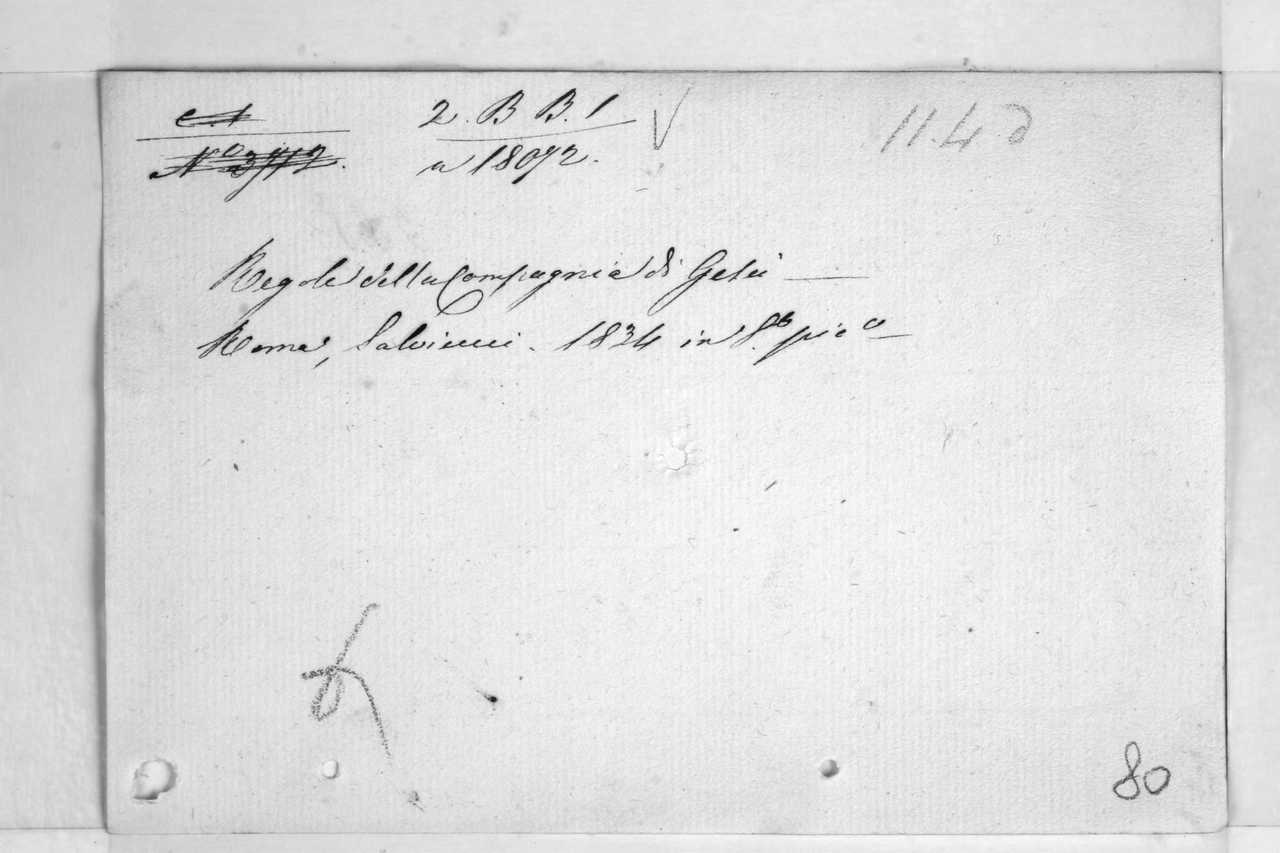 2. B B. 1
11.4 d
Regole della Compagnia di Gesù
Roma, Salviucci. 1834 in 8.º pic.º
80